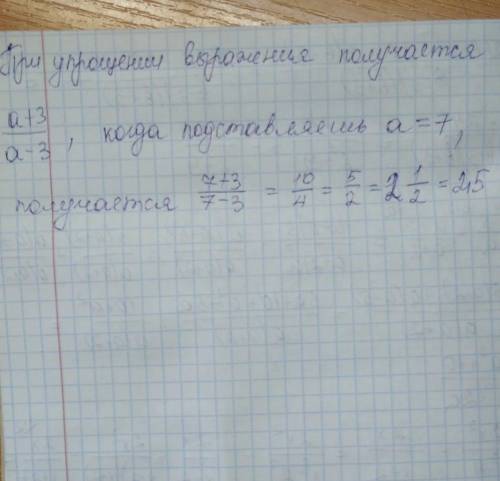 При упрощении выражения получается
a+3/a-3, когда подставляешь a=7,
получается 7+3/7-3 = 10/4 = 5/2 = 2 1/2 = 2,5